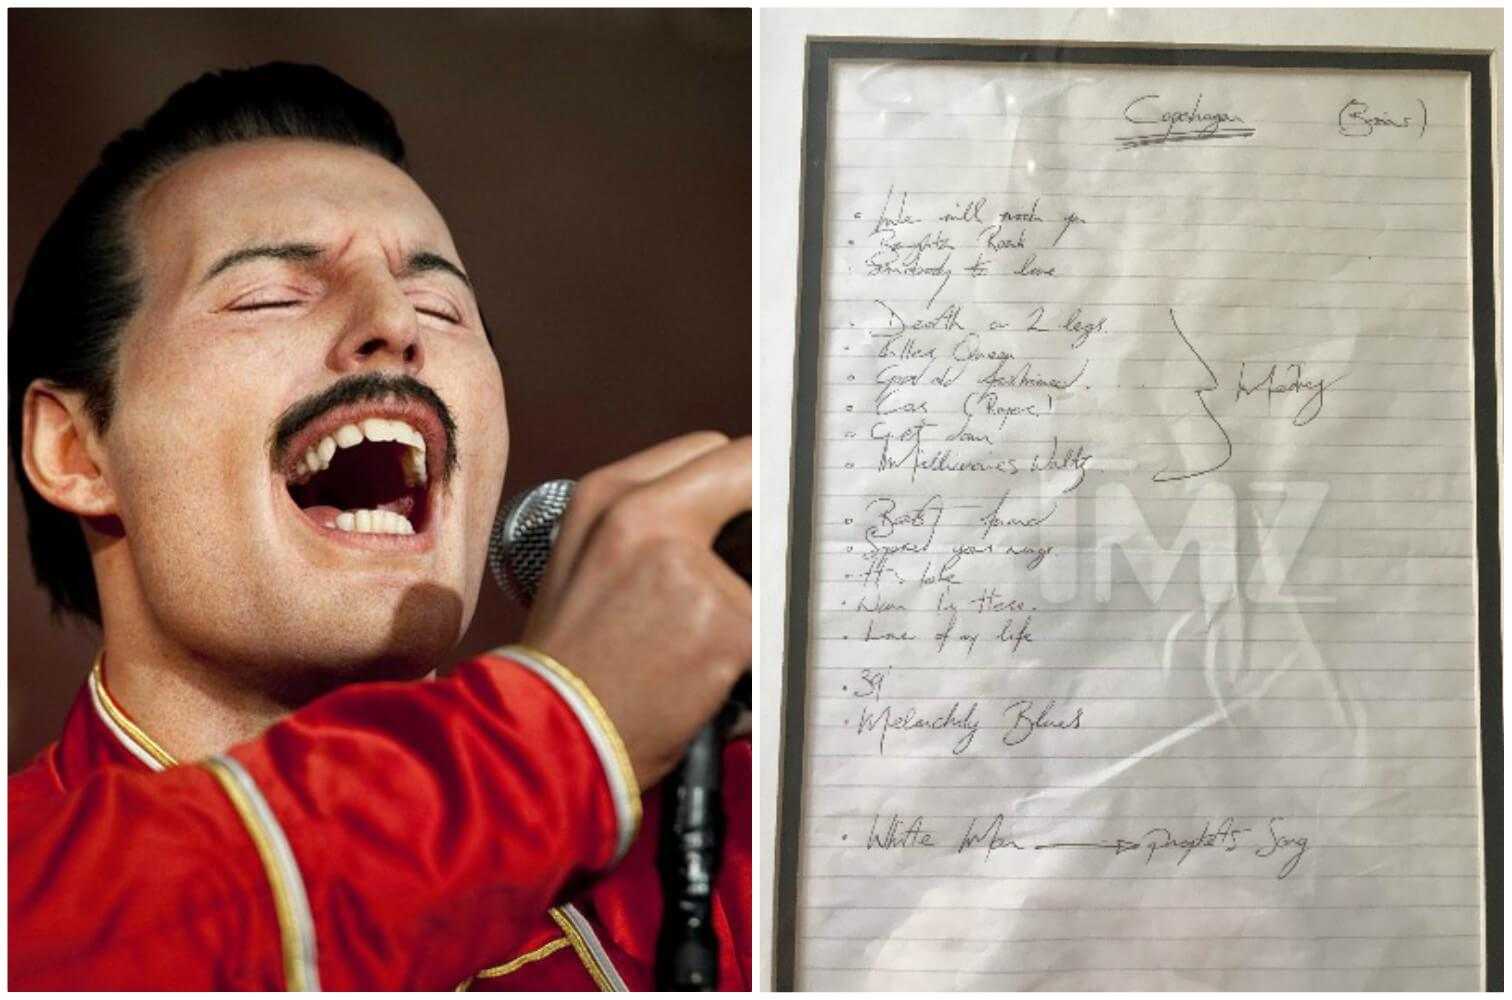 Copenhagen (Brians)
• will rock you
• Brighton Rock
• Somebody to love
• Death on 2 legs.
• Killer Queen
• Good old fashioned.
• Car (Reprise)
• Get down
• Millionaires Waltz
Medley
•
• Spread your wings.
• It's late
• Now I'm Here.
• Love of my life
• 39'
• Melancholy Blues
• White Man → prophets Song
TMZ